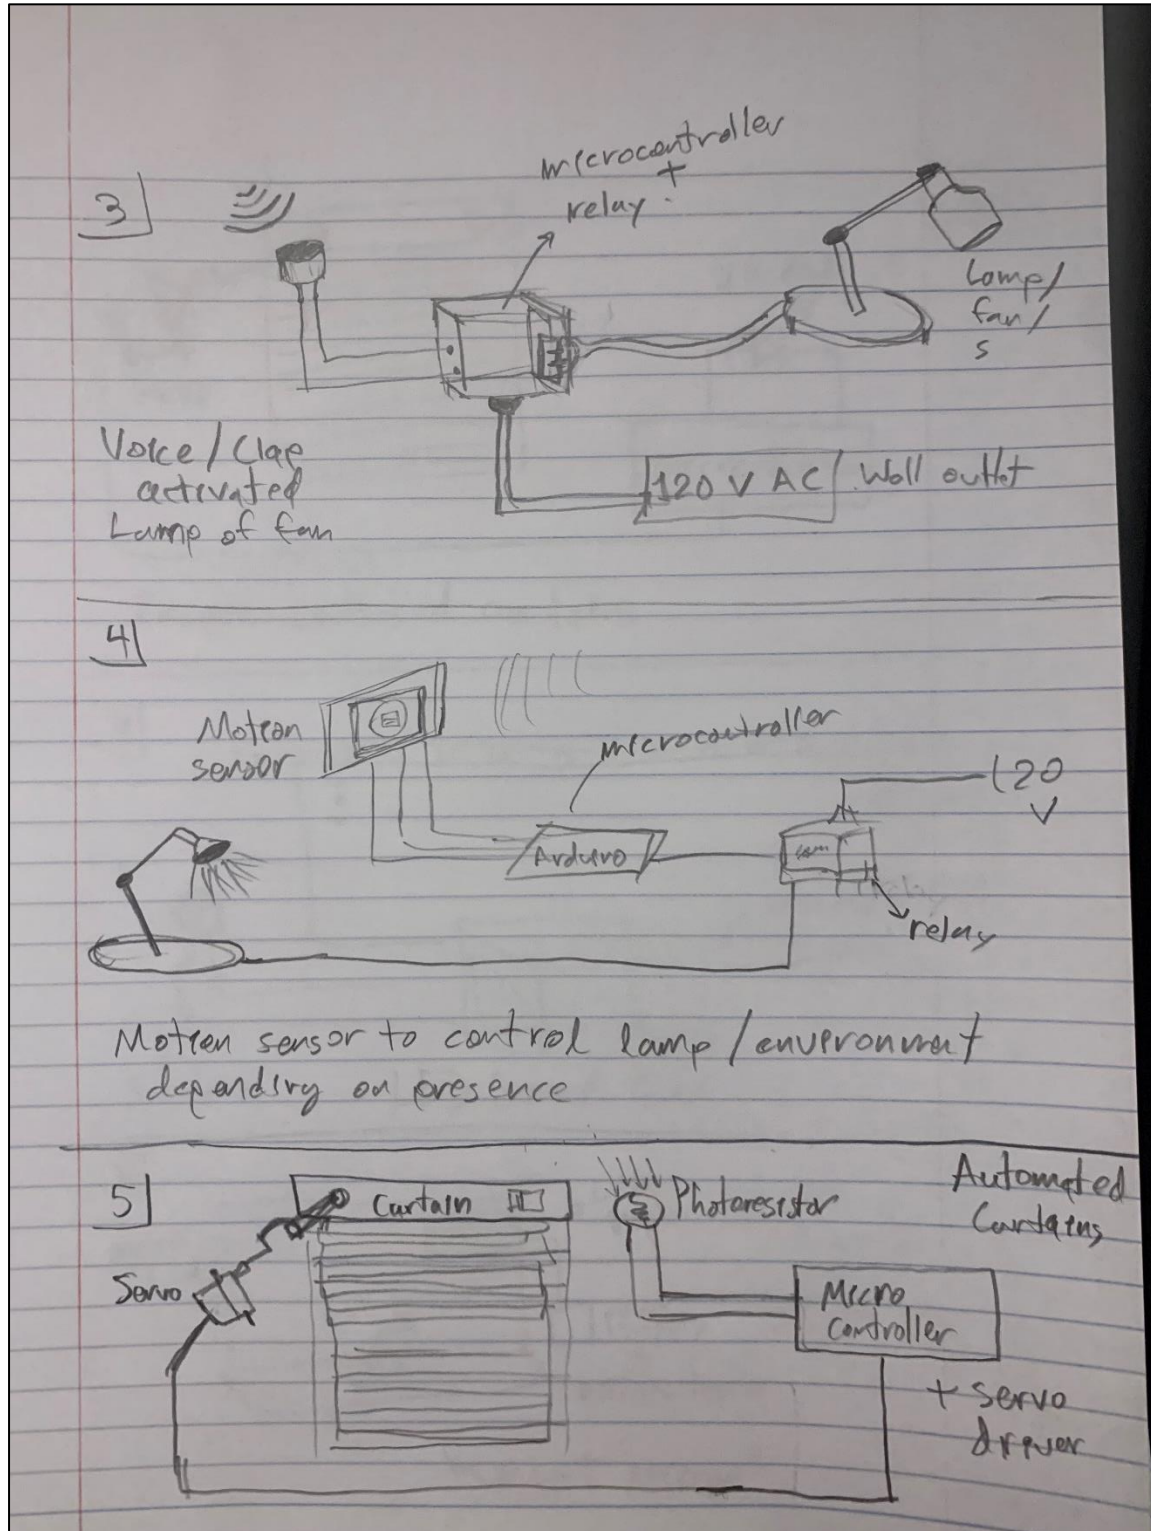 3
microcontroller
+
relay
Lamp/
fan/
s
Voice/Clap
activated
Lamp of fan
120 V AC/ Wall outlet
4
Motion
sensor
microcontroller
120
V
Arduino
relay
Motion sensor to control lamp/environment
depending on presence
5
Curtain
Photoresistor
Automated
Curtains
Servo
Micro
controller
+ servo
driver